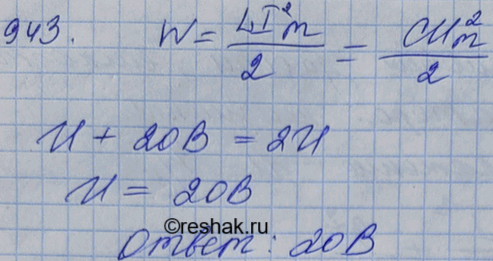 943. W = LI²m/2 = CU²m/2
U + 20В = 2U
U = 20В
©reshak.ru
Ответ: 20В